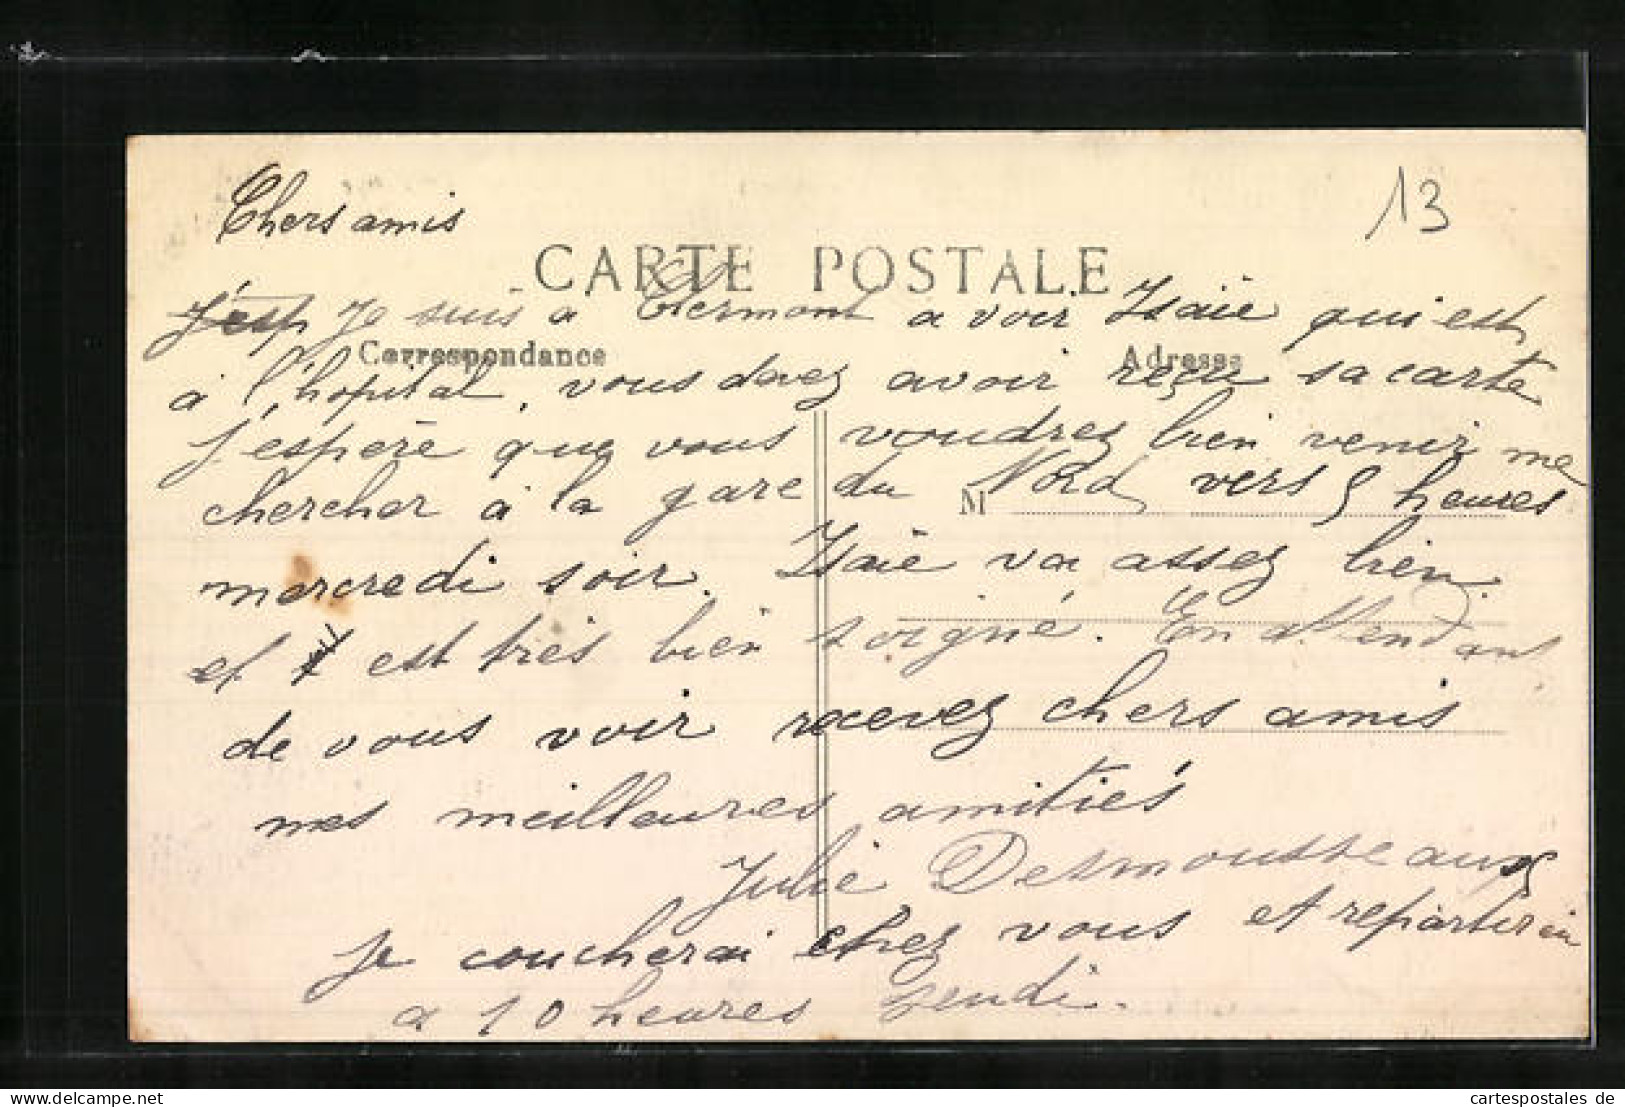 13
Chers amis
CARTE POSTALE
J'esp Je suis à Clermont a voir Isaïe qui est
Correspondance
Adresse
à l'hopital, vous devez avoir reçu sa carte
J'espère que vous voudrez bien venir me
chercher à la gare du Nord vers 5 heures
M
mercredi soir. Isaïe va assez bien
et est très bien soigné. En attendant
de vous voir recevez chers amis
mes meilleures amitiés
Julie Desmousseaux
Je coucherai chez vous et repartirai
a 10 heures jeudi.
www.cartespostales.com
cartespostales de